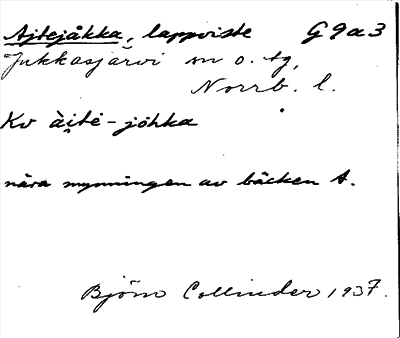 Ajtejåkka, lappviste G 9 a 3
Jukkasjärvi sn o. tg,
Norrb. l.
Kv ài̯té-jòhka
nära mynningen av bäcken A.
Björn Collinder 1937.